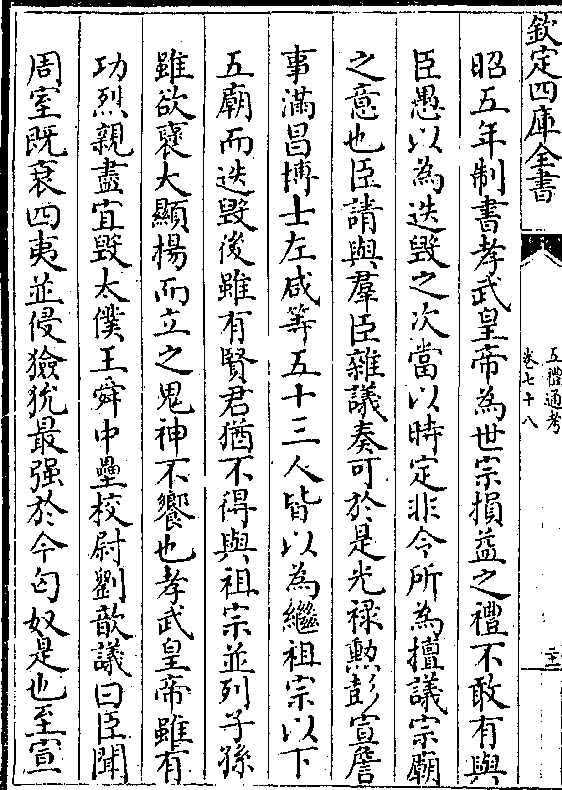 欽定四庫全書
五禮通考
卷七十八
二十三
昭五年制書孝武皇帝為世宗損益之禮不敢有與
臣愚以為迭毀之次當以時定非令所為擅議宗廟
之意也臣請與羣臣雜議奏可於是光祿勲彭宣詹
事滿昌博士左咸等五十三人皆以為繼祖宗以下
五廟而迭毀後雖有賢君猶不得與祖宗並列子孫
雖欲襃大顯揚而立之鬼神不饗也孝武皇帝雖有
功烈親盡宜毀太僕王舜中壘校尉劉歆議曰臣聞
周室既衰四夷並侵獫狁最强於今匈奴是也至宣